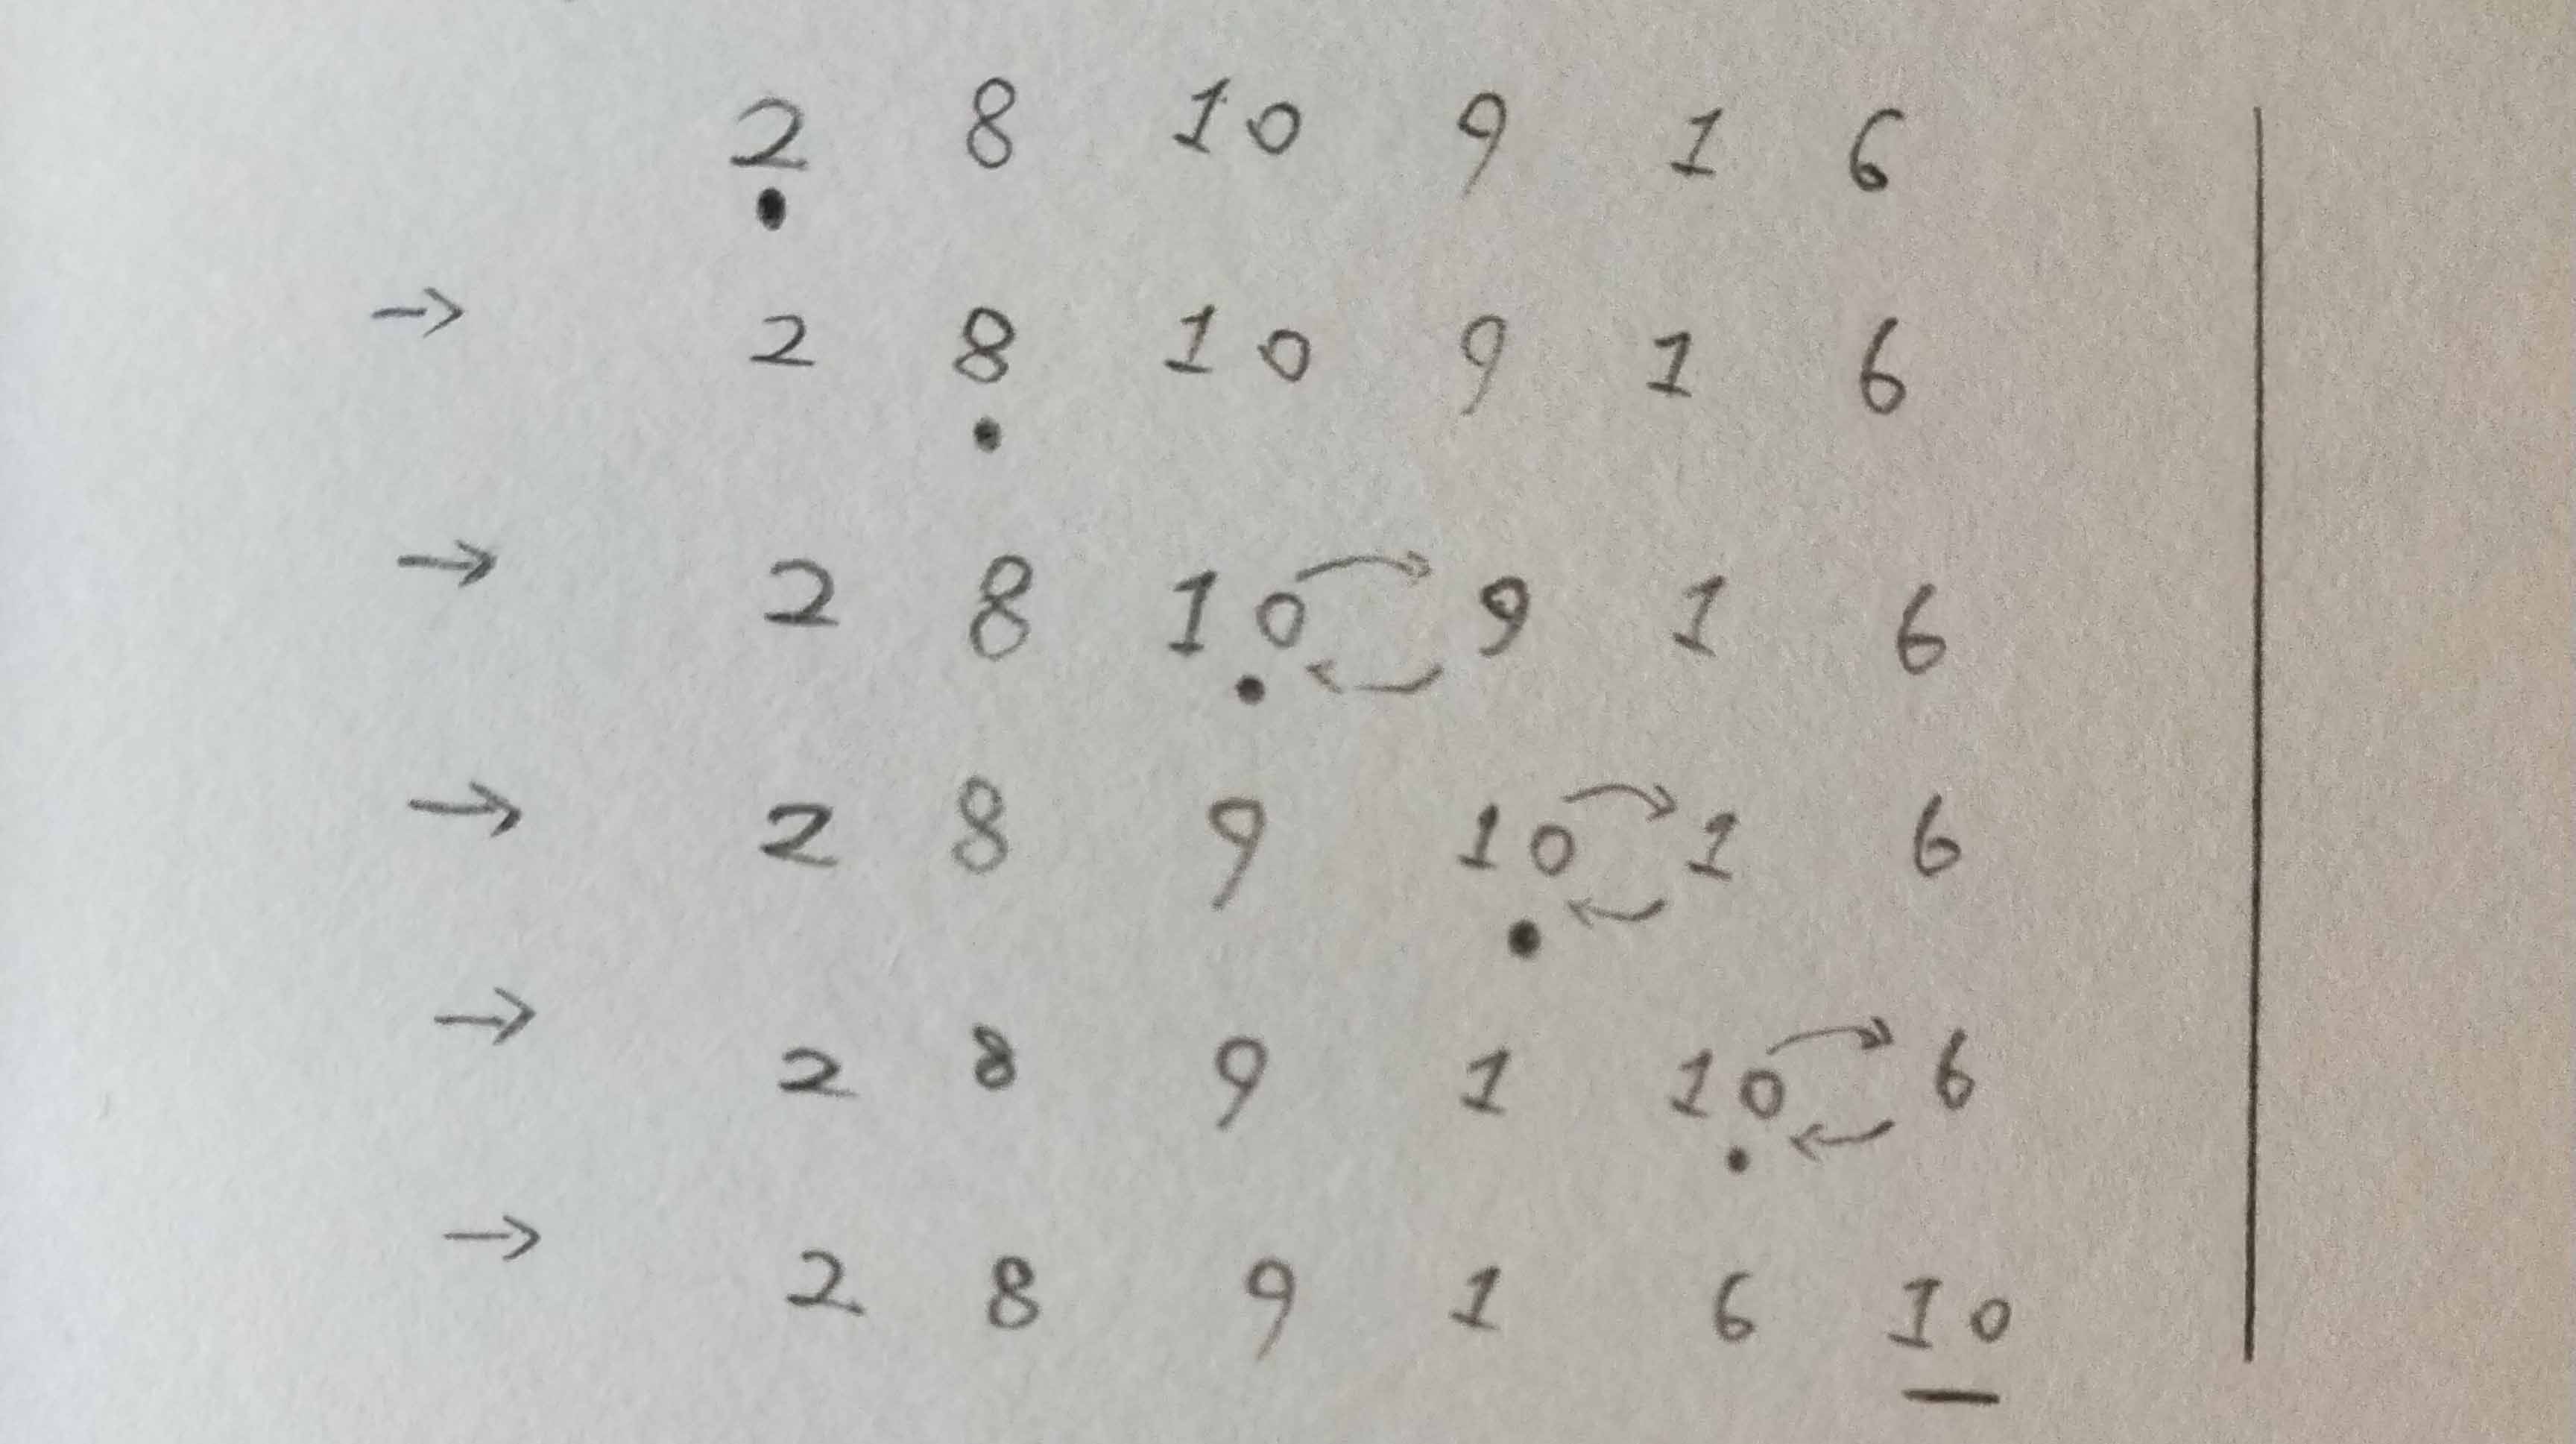 2 8 10 9 1 6
→ 2 8 10 9 1 6
→ 2 8 10 9 1 6
→ 2 8 9 10 1 6
→ 2 8 9 1 10 6
→ 2 8 9 1 6 10